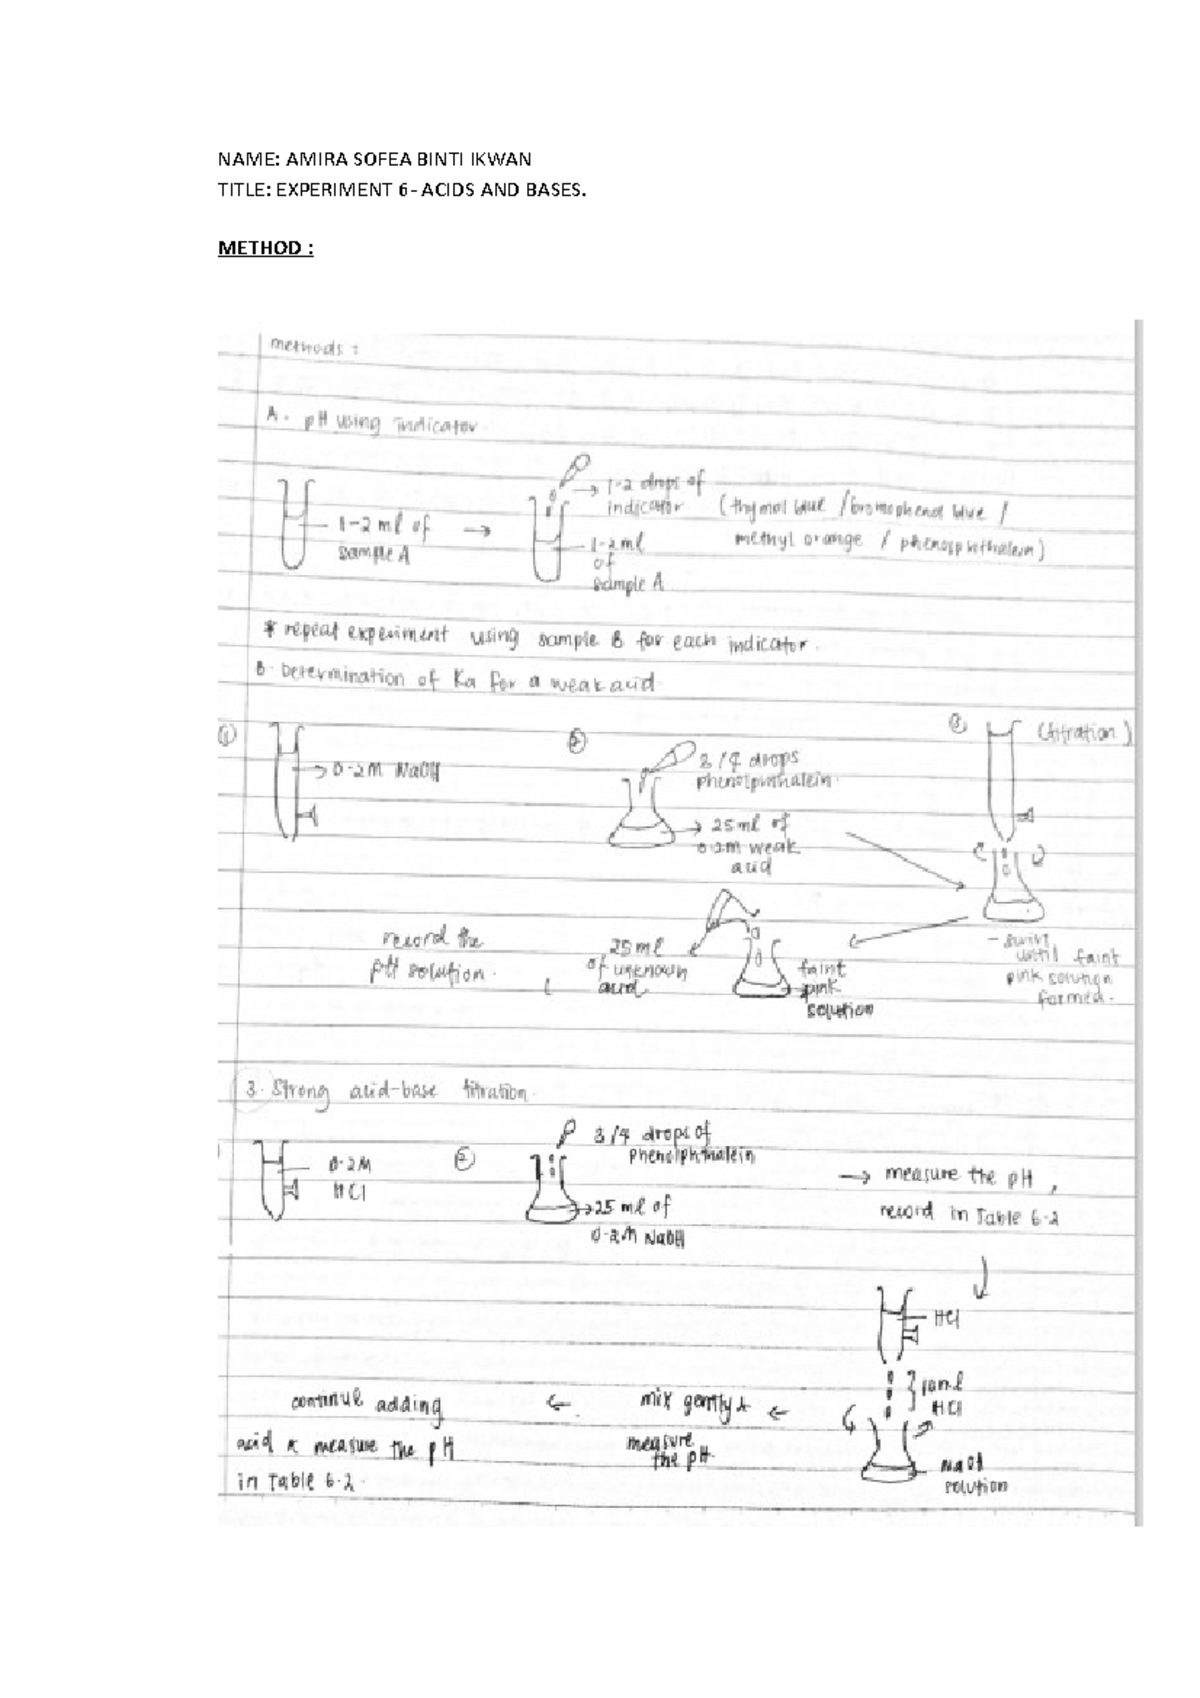 NAME: AMIRA SOFEA BINTI IKWAN
TITLE: EXPERIMENT 6- ACIDS AND BASES.
METHOD :
methods :
A. pH using indicator.
1-2 ml of
sample A
→ 1-2 drops of
indicator (thymol blue / bromophenol blue /
methyl orange / phenolphthalein)
1-2 ml
of
sample A
* repeat experiment using sample B for each indicator.
B. Determination of Ka for a weak acid
①
0.2M NaOH
②
3/4 drops
phenolphthalein.
25 ml of
0.2M weak
acid
③
(titration)
- swirl
until faint
pink solution
formed.
faint
pink
solution
25 ml
of unknown
acid
record the
pH solution.
3. Strong acid-base titration.
0.2M
HCl
②
3/4 drops of
phenolphthalein
25 ml of
0.2M NaOH
→ measure the pH,
record in Table 6.2
HCl
10ml
HCl
NaOH
solution
mix gently &
measure
the pH.
continue adding
acid & measure the pH
in Table 6.2.